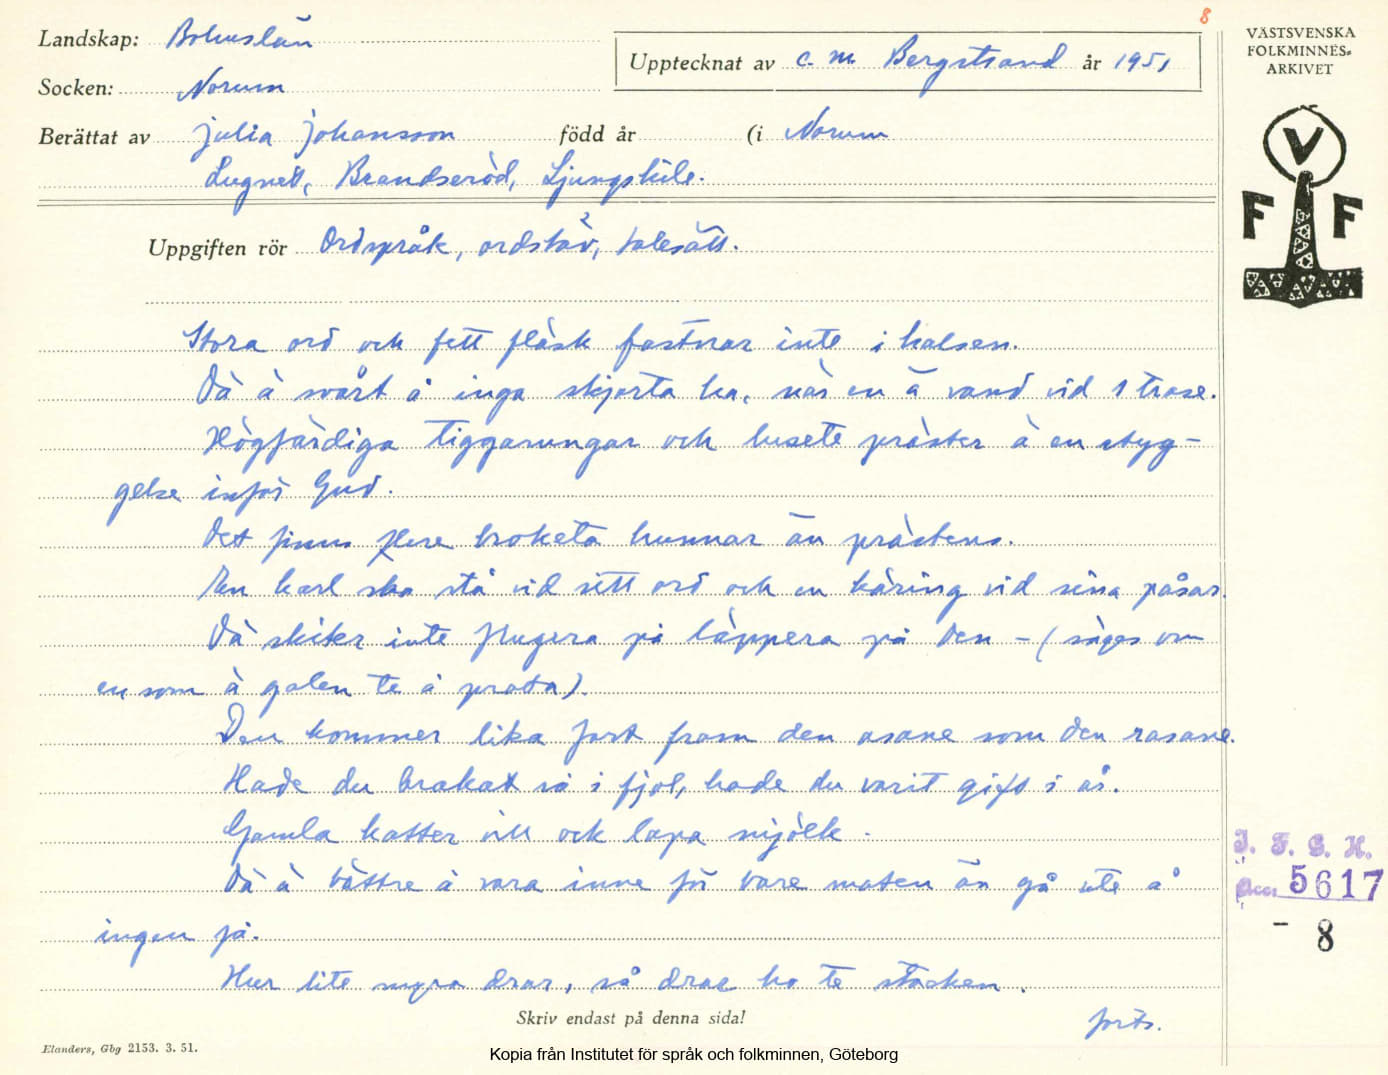 8
Landskap: Bohuslän
Upptecknat av C. M. Bergstrand år 1951
VÄSTSVENSKA
FOLKMINNES-
ARKIVET
Socken: Norum
Berättat av Julia Johansson född år (i Norum
Lugnet, Brandseröd, Ljungskile.
V
F F
Uppgiften rör Ordspråk, ordstäv, talesätt.
2
Stora ord och fett fläsk fastnar inte i halsen.
Dä ä svårt å inga skjorta ha, när en ä vand vid 1 trase.
Högfärdiga tiggarungar och lusete präster ä en styg-
gelse inför Gud.
Det finns flere broketa hunnar än prästens.
En karl ska stå vid sitt ord och en käring vid sina påsar.
Dä skiter inte flugera på läppera på den - (säges om
en som ä galen te å prata).
Den kommer lika fort fram den asane som den rasane.
Hade du brakat så i fjol, hade du varit gift i år.
Gamla katter vill ock lapa mjölk.
Dä ä bättre å vara inne för bare maten än gå ute å
ingen få.
Hur lite myra drar, så drar ho te stacken.
Skriv endast på denna sida!
forts.
Elanders, Gbg 2153. 3. 51.
I. F. G. H.
Acc. 5617
- 8
Kopia från Institutet för språk och folkminnen, Göteborg